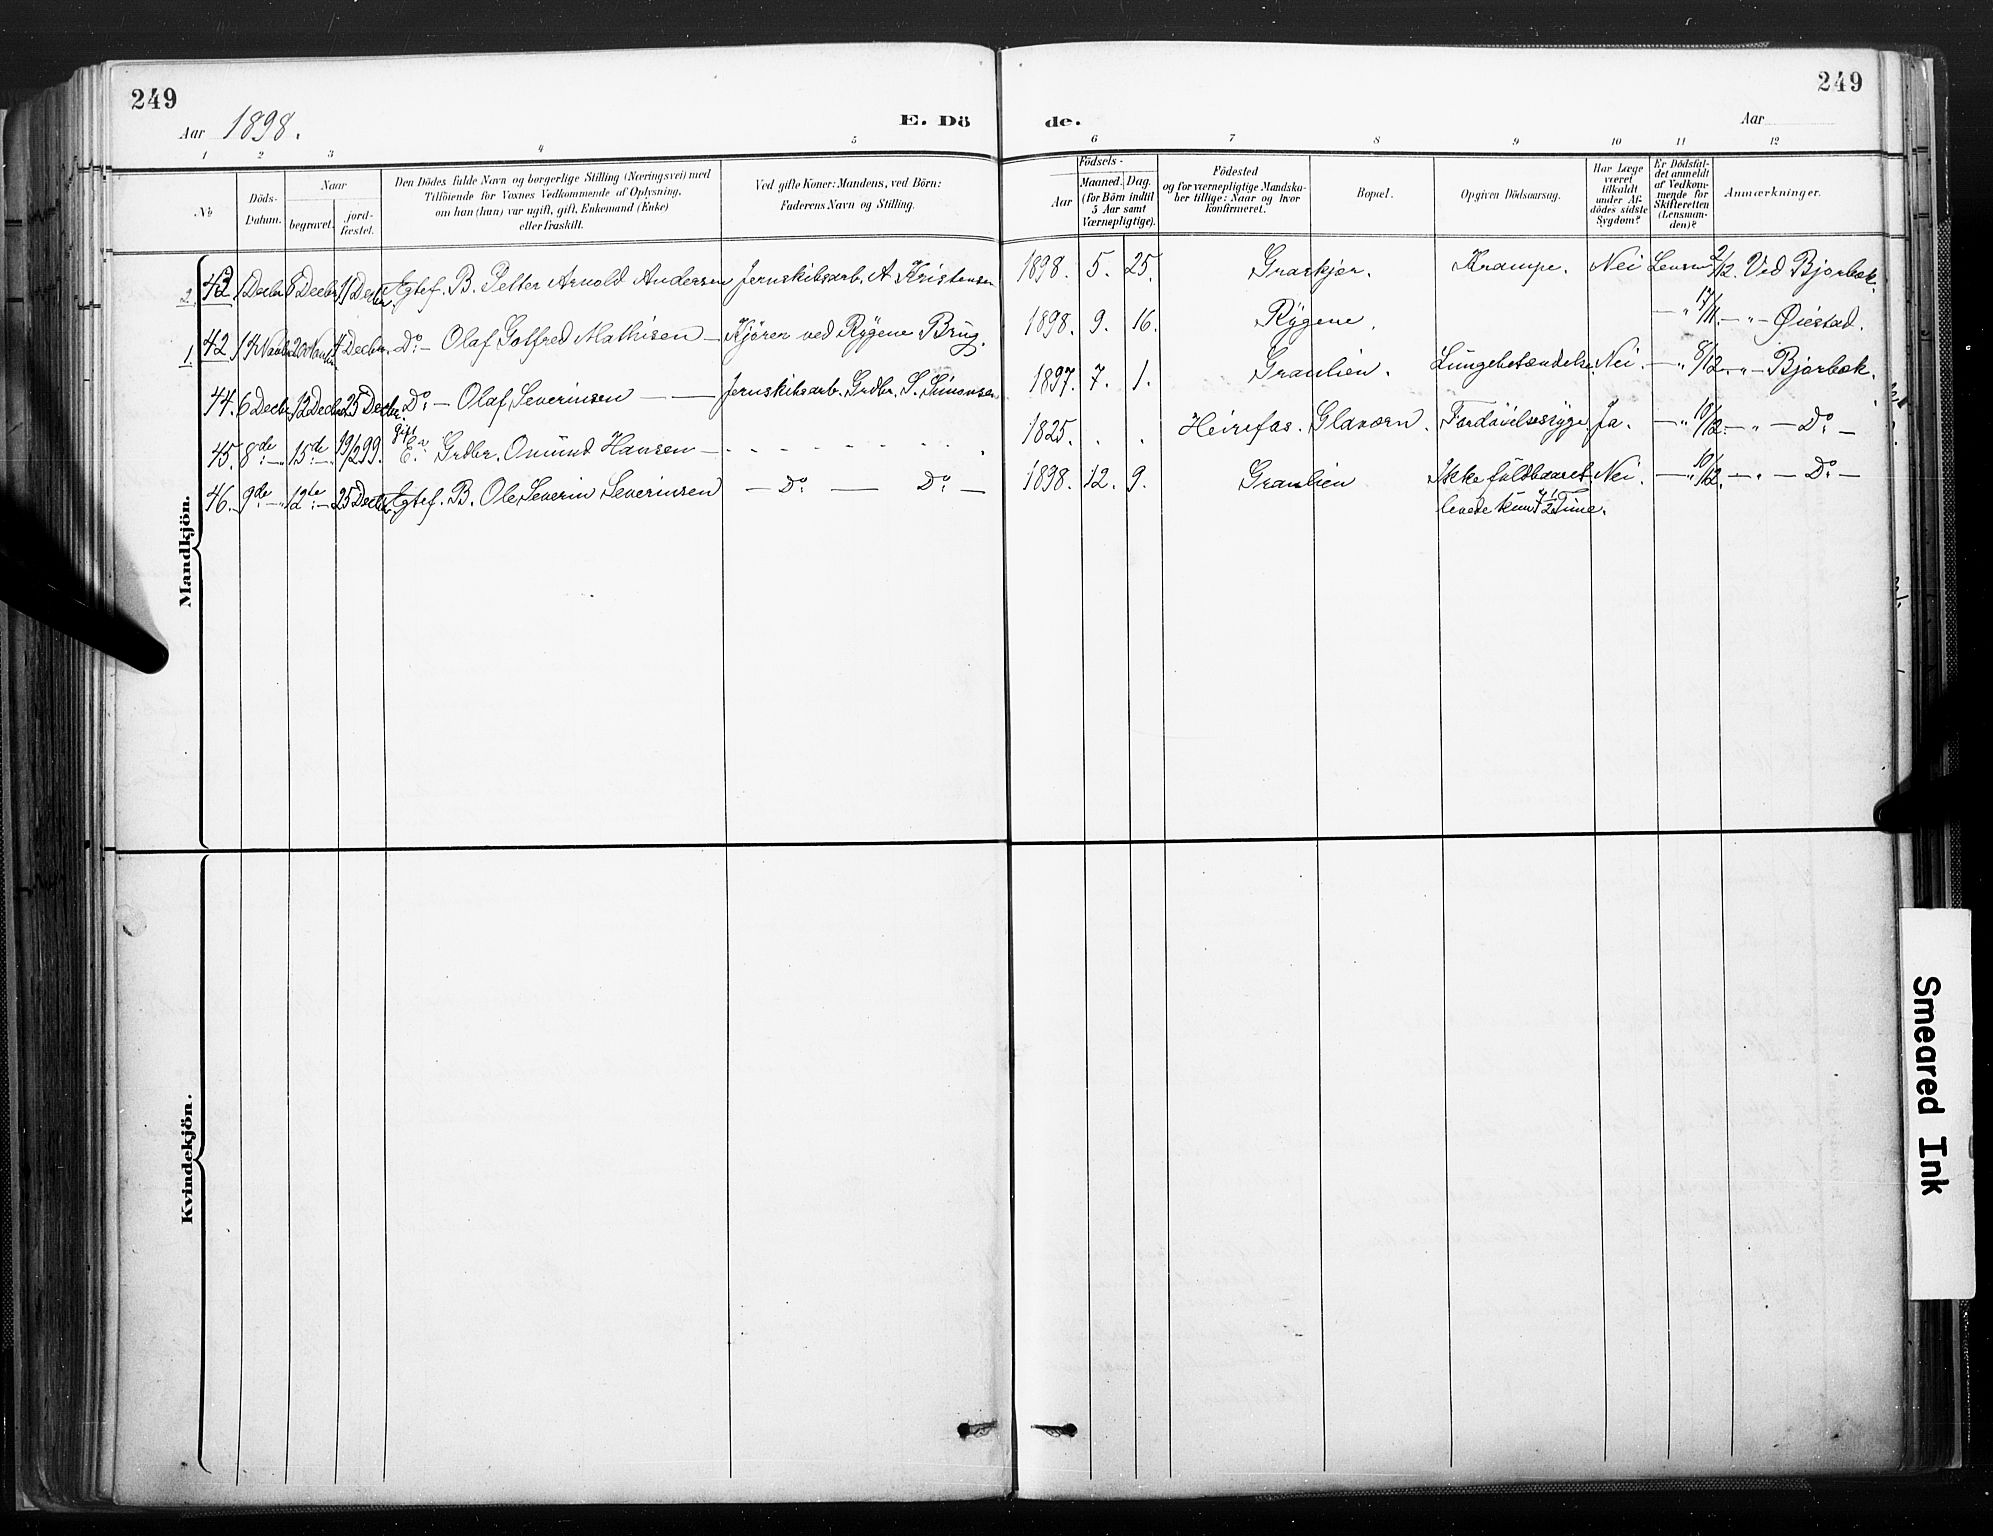 249
249
Aar 1898.
E. Dö
de.
Aar
1 2 3 4 5 6 7 8 9 10 11 12
No
Döds-Datum.
Naar
begravet.
jord-fæstet.
Den Dödes fulde Navn og borgerlige Stilling (Næringsvei) med
Tilföiende for Voxnes Vedkommende af Oplysning,
om han (hun) var ugift, gift, Enkemand (Enke)
eller fraskilt.
Ved gifte Koner: Mandens, ved Börn:
Faderens Navn og Stilling.
Födsels-
Aar
Maaned. Dag.
(for Börn indtil
5 Aar samt
Værnepligtige).
Födested
og for værnepligtige Mandska-
ber tillige: Naar og hvor
konfirmeret.
Bopæl.
Opgiven Dödsaarsag.
Har Læge
været
tilkaldt
under Af-
dödes sidste
Sygdom?
Er Dödsfal-
det anmeldt
af Vedkom-
mende for
Skifteretten
(Lensman-
den)?
Anmærkninger.
Mandkjön.
2. 43 1 Decbr 8 Decbr 11 Decbr. Egtef. B. Petter Arnold Andersen Jernskibsarb. A. Kristensen 1898. 5. 25. Graskjær. Krampe. Nei Lensm 2/12. Ved Bjorbæk.
1. 42 14 Novbr 20 Novbr 4 Decbr. Do. – Olaf Gotfred Mathisen – Kjörer ved Rygene Brug. 1898. 9. 16. Rygene. – " 17/11. – " – Øiestad.
44. 6 Decbr 12 Decbr 25 Decbr. Do. – Olaf Severinsen – – Jernskibsarb. Grdbr. S. Simonsen 1897. 7. 1. Graulien. Lungebetændelse. Nei. – " 8/12. – " – Bjorbæk.
45. 8de – " 15de – " 19/2 99. gift E. Grdbr. Omund Hansen – 1825. Heirefos. Glavorn. Fordöielsessyge. Ja. – " 10/12. – " – Do. –
46. 9de – " 12te – " 25 Decbr. Egtef. B. Ole Severin Severinsen – Do. – Do. – 1898. 12. 9. Graulien Ikke fuldbaaret Nei. – " 10/12. – " – Do. –
levede kun 7 1/2 Time.
Kvindekjön.
Smeared Ink